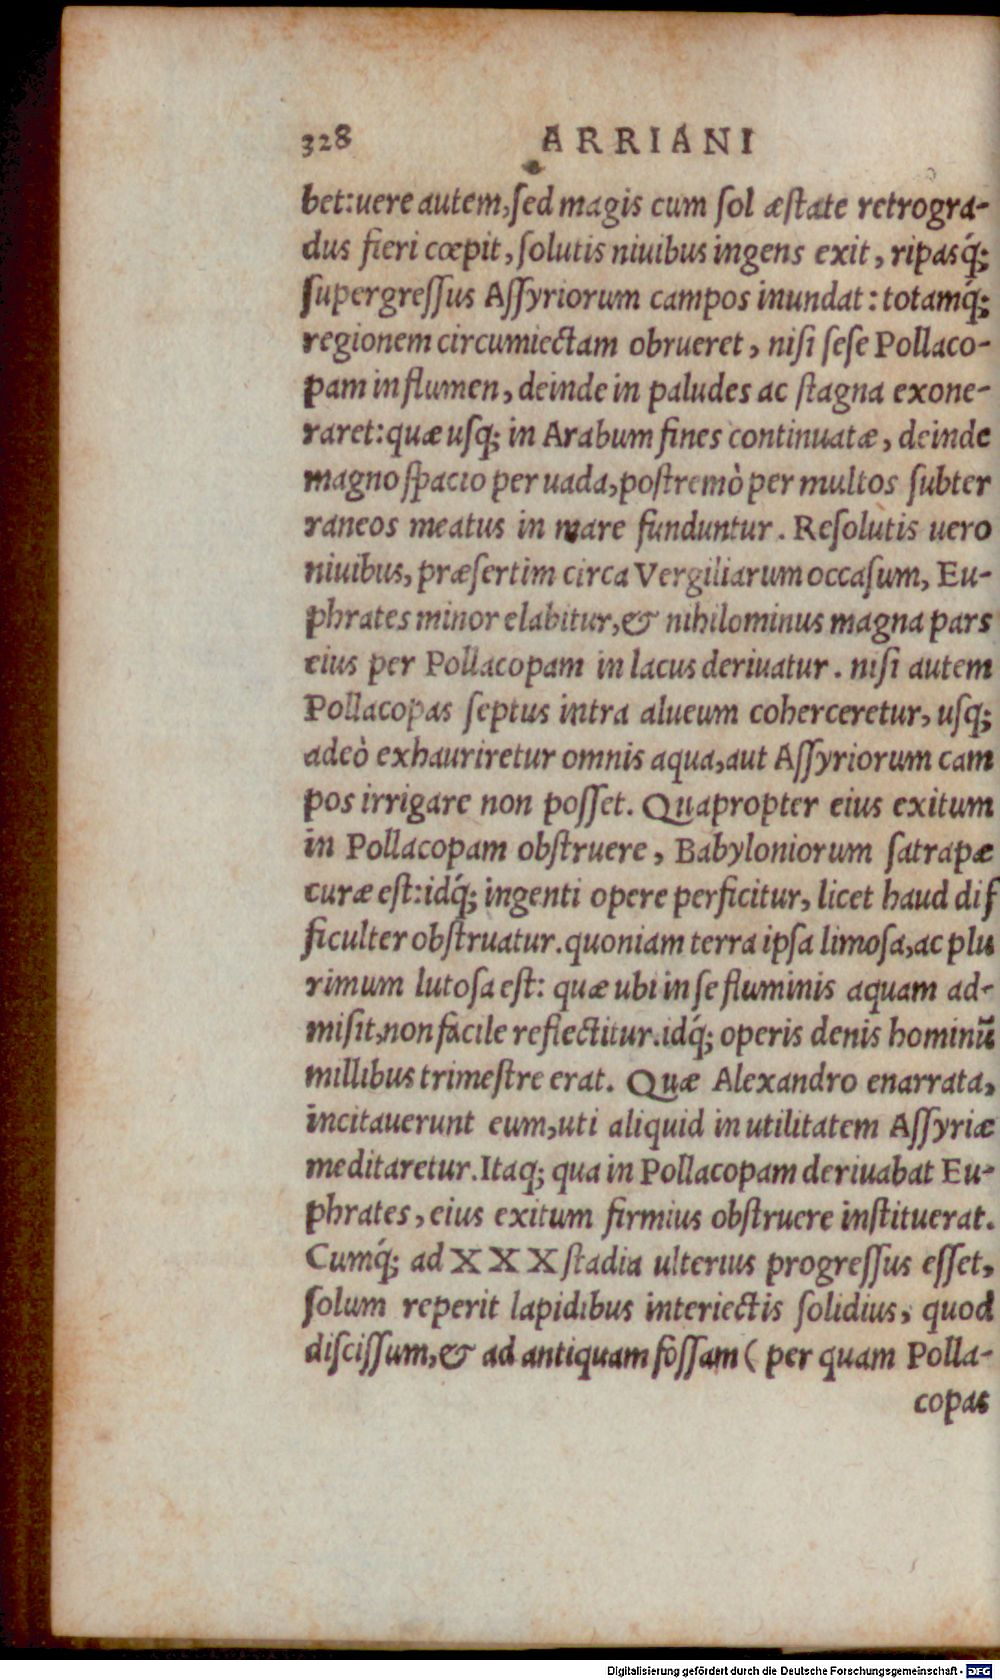 328 ARRIANI
bet:uere autem,ſed magis cum ſol æſtate retrogra-
dus fieri cœpit, ſolutis niuibus ingens exit, ripasq́;
ſupergreſſus Aſſyriorum campos inundat: totamq́;
regionem circumiectam obrueret, niſi ſeſe Pollaco-
pam in flumen, deinde in paludes ac ſtagna exone-
raret:quæ uſq; in Arabum fines continuatæ, deinde
magno ſpacio per uada,poſtremò per multos ſubter
raneos meatus in mare funduntur. Reſolutis uero
niuibus, præſertim circa Vergiliarum occaſum, Eu-
phrates minor elabitur,& nihilominus magna pars
eius per Pollacopam in lacus deriuatur. niſi autem
Pollacopas ſeptus intra alueum coherceretur, uſq;
adeò exhauriretur omnis aqua,aut Aſſyriorum cam
pos irrigare non poſſet. Quapropter eius exitum
in Pollacopam obſtruere, Babyloniorum ſatrapæ
curæ eſt:idq́; ingenti opere perficitur, licet haud dif
ficulter obſtruatur.quoniam terra ipſa limoſa,ac plu
rimum lutoſa eſt: quæ ubi in ſe fluminis aquam ad-
miſit,non facile reflectitur.idq́; operis denis hominū
millibus trimeſtre erat. Quæ Alexandro enarrata,
incitauerunt eum,uti aliquid in utilitatem Aſſyriæ
meditaretur.Itaq; qua in Pollacopam deriuabat Eu-
phrates, eius exitum firmius obſtruere inſtituerat.
Cumq́; ad XXX ſtadia ulterius progreſſus eſſet,
ſolum reperit lapidibus interiectis ſolidius, quod
diſciſſum,& ad antiquam foſſam ( per quam Polla-
copas
Digitalisierung gefördert durch die Deutsche Forschungsgemeinschaft - DFG